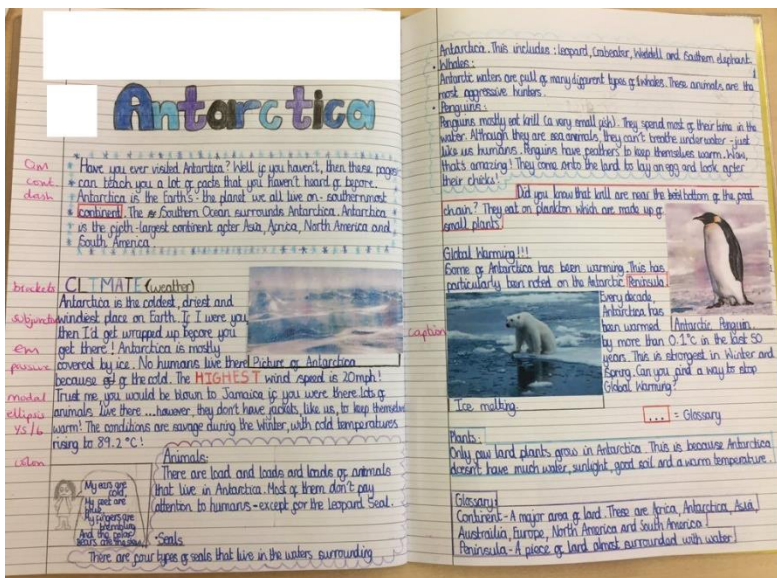 Antarctica
QM
cont
dash
Have you ever visited Antarctica? Well if you haven't, then these pages
can teach you a lot of facts that you haven't heard of before.
Antarctica is the Earth's - the planet we all live on - southernmost
continent. The Southern Ocean surrounds Antarctica. Antarctica
is the fifth-largest continent after Asia, Africa, North America and
South America.
brackets
subjunctive
em
passive
modal
ellipsis
ys/6
colon
CLIMATE (weather)
Antarctica is the coldest, driest and
windiest place on Earth. If I were you
then I'd get wrapped up before you
get there! Antarctica is mostly
covered by ice. No humans live there
Picture of Antarctica
because of the cold. The HIGHEST wind speed is 20mph!
Trust me, you would be blown to Jamaica if you were there. Lots of
animals live there ... however, they don't have jackets, like us, to keep themselves
warm! The conditions are savage during the Winter, with cold temperatures
rising to 89.2°C!
My ears are
cold,
My feet are
blue,
My fingers are
trembling
And the polar
bears are too
Animals:
There are load and loads and loads of animals
that live in Antarctica. Most of them don't pay
attention to humans - except for the Leopard Seal.
• Seals
There are four types of seals that live in the waters surrounding
Antarctica. This includes: leopard, Crabeater, Weddell and Southern elephant.
• Whales:
Antarctic waters are full of many different types of whales. These animals are the
most aggressive hunters.
• Penguins:
Penguins mostly eat krill (a very small fish). They spend most of their time in the
water. Although they are sea animals, they can't breathe underwater - just
like us humans. Penguins have feathers to keep themselves warm. Wow,
that's amazing! They come onto the land to lay an egg and look after
their chicks!
Did you know that krill are near the bottom of the food
chain? They eat on plankton which are made up of
small plants.
Global Warming!!!
Some of Antarctica has been warming. This has
particularly been noted on the Antarctic Peninsula.
Every decade,
Antarctica has
been warmed
by more than 0.1°C in the last 50
years. This is strongest in Winter and
Spring. Can you find a way to stop
Global Warming?
caption
Antarctic Penguin
Ice melting.
... = Glossary
Plants:
Only few land plants grow in Antarctica. This is because Antarctica
doesn't have much water, sunlight, good soil and a warm temperature.
Glossary:
Continent - A major area of land. These are Africa, Antarctica, Asia,
Austrailia, Europe, North America and South America
Peninsula - A piece of land almost surrounded with water